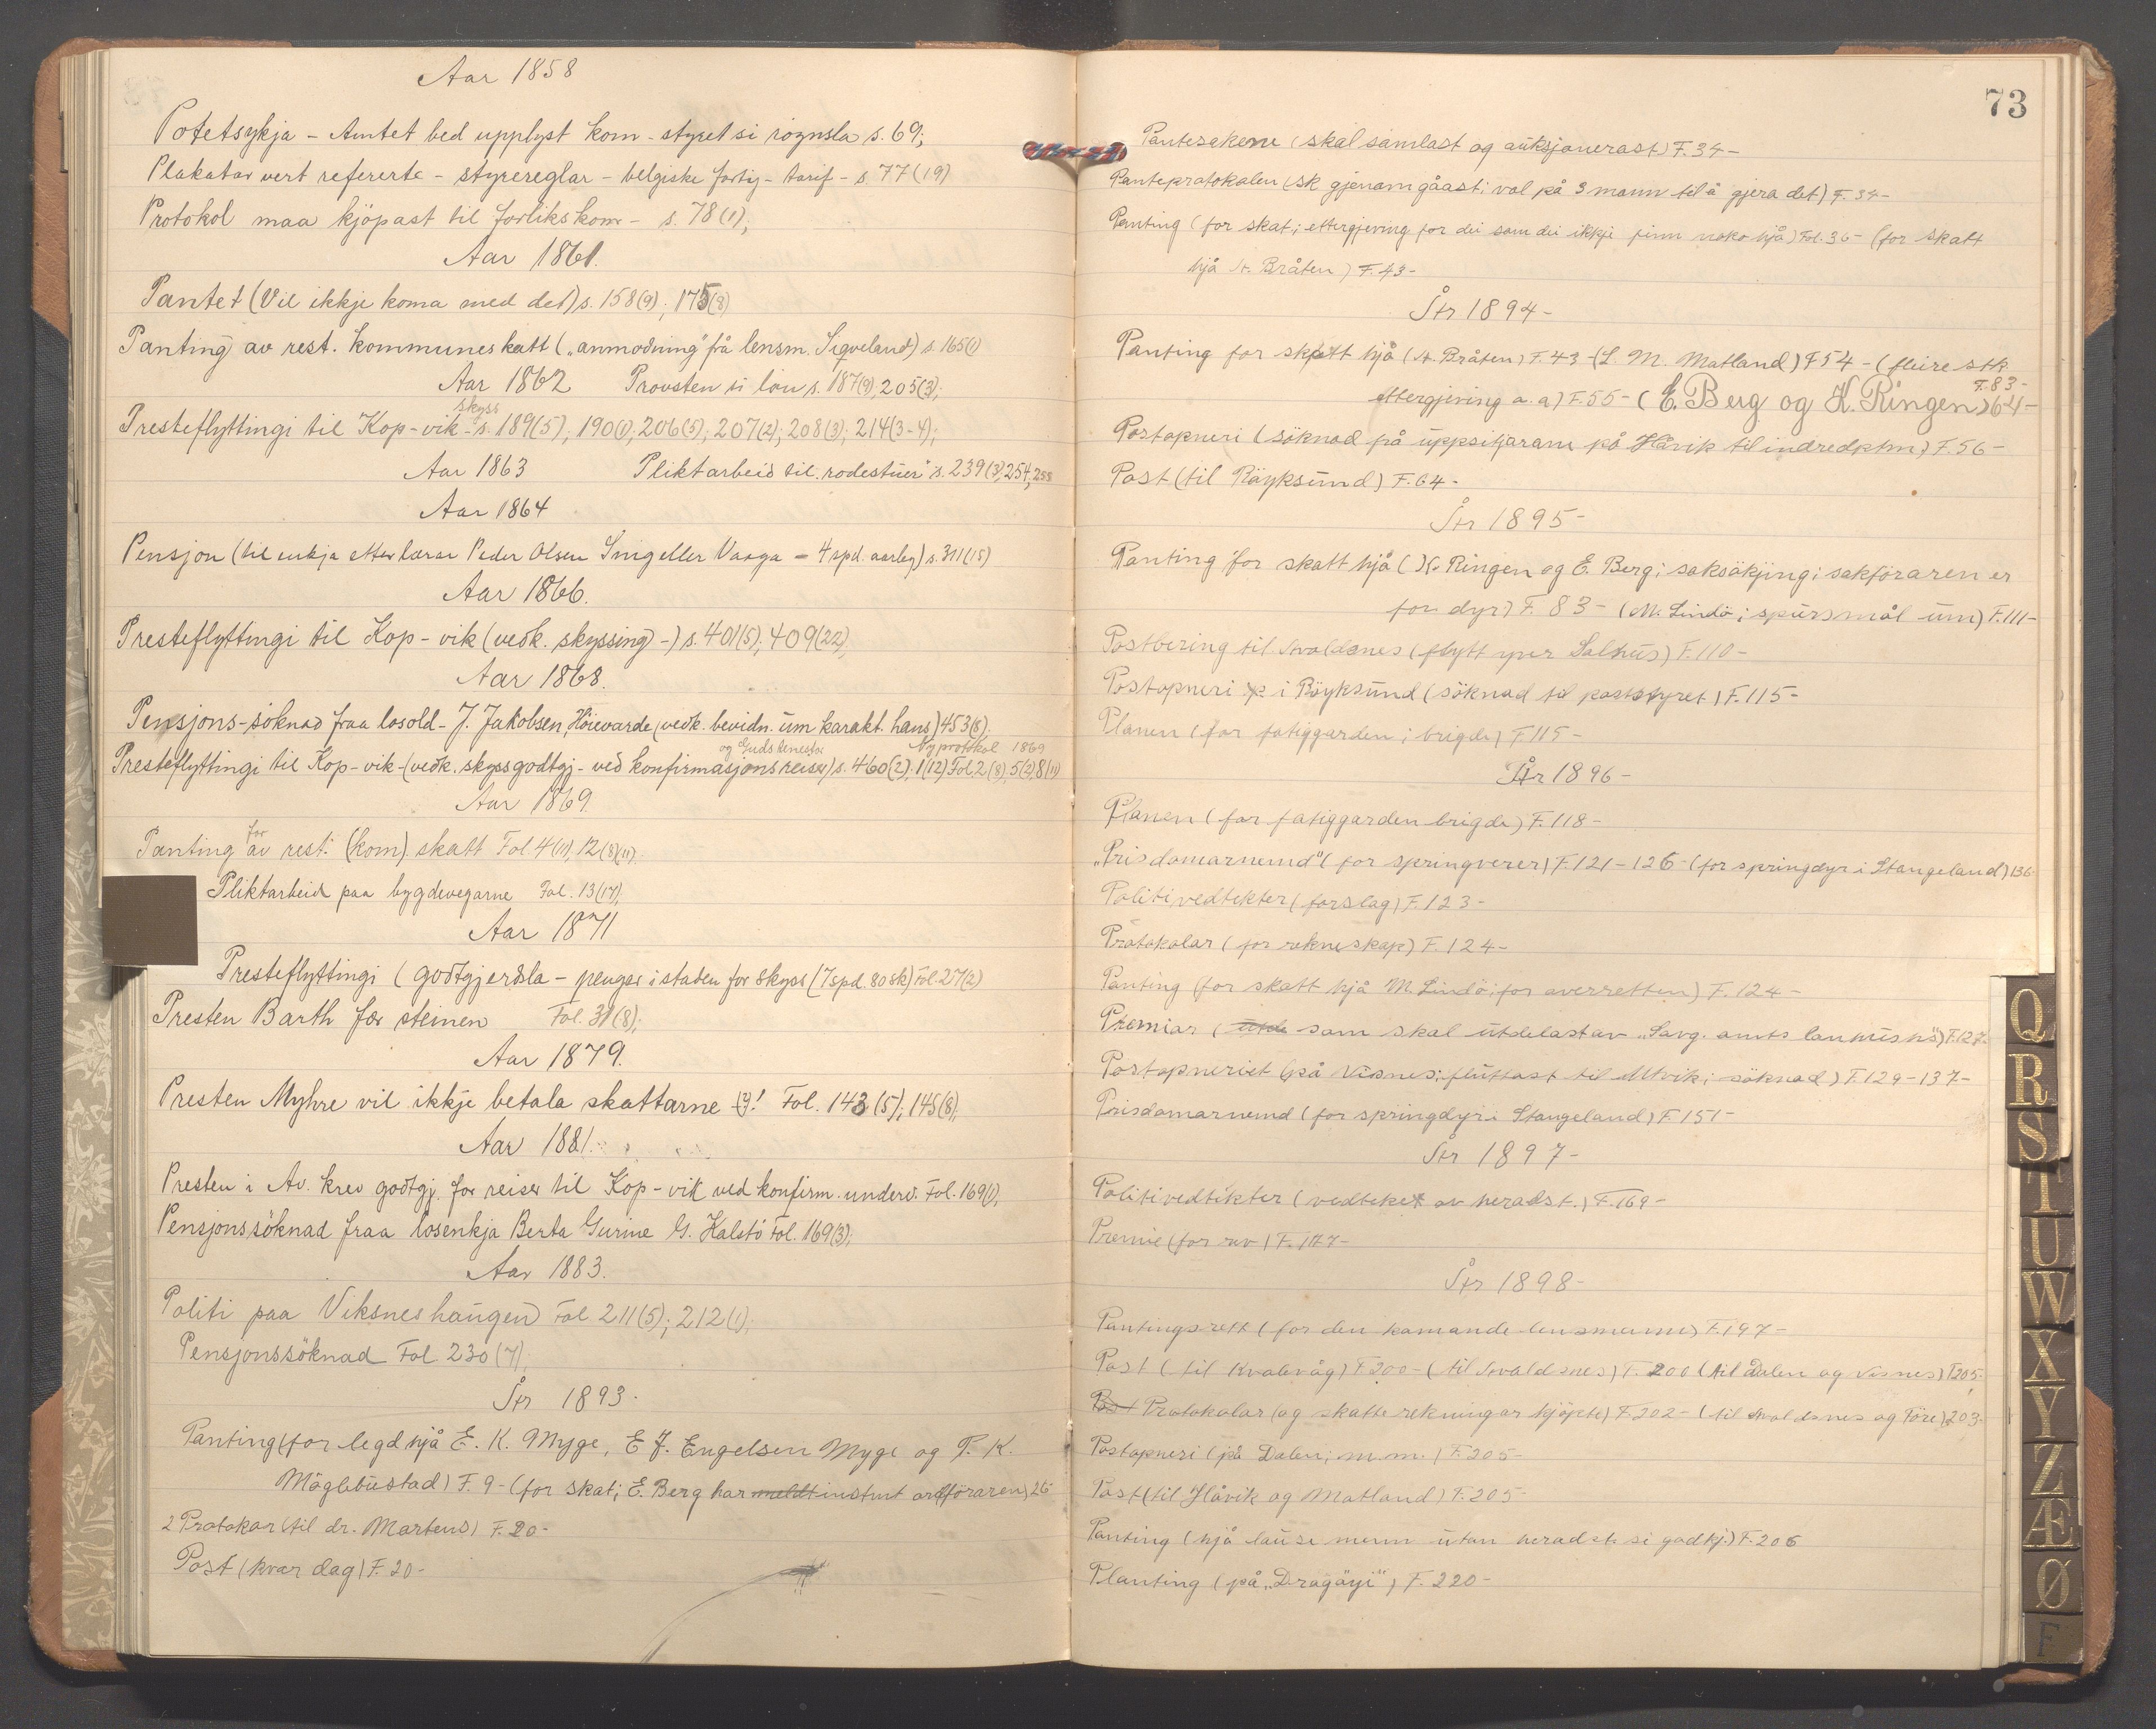 Aar 1858
Potetsykja - Amtet bed upplyst kom-styret si röynsla s. 69;
Plakatar vert refererte - styrereglar - belgiske fartøj - tarif - s. 77 (19)
Protokol maa kjöpast til forlikskom - s. 78 (1);
Aar 1861.
Pantet (Vil ikkje koma med det) s. 158 (9); 175 (8)
Panting av rest. kommuneskatt („anmodning" frå lensm. Sigveland) s. 165 (1)
Aar 1862 Provsten si løn s. 187 (9), 205 (3);
skyss
Presteflyttingi til Kop-vik - s. 189 (5); 190 (1); 206 (5); 207 (2); 208 (3); 214 (3-4);
Aar 1863 Pliktarbeid til „rodestuer" s. 239 (3); 254; 255
Aar 1864
Pensjon (til enkja etter lærar Peder Olsen Snig eller Vaaga - 4 spd. aarleg) s. 311 (15)
Aar 1866.
Presteflyttingi til Kop-vik (vedk. skyssing -) s. 401 (5); 409 (22)
Aar 1868.
Pensjons-söknad fraa losold - J. Jakobsen, Höievarde (vedk. bevidn. um karakt. hans) 453 (8).
og Gudstenester Ny protokol 1869
Presteflyttingi til Kop-vik - (vedk. skyssgodtgj - ved konfirmasjonsreiser) s. 460 (2); 1 (12) Fol. 2 (8), 5 (2), 8 (11)
Aar 1869.
for
Panting av rest. (kom) skatt Fol. 4 (11), 12 (8)(11).
Pliktarbeid paa bygdevegarne Fol. 13 (17),
Aar 1871
Presteflyttingi (godtgjersla - pengar istaden for skyss (7 spd. 80 sk) Fol. 27 (2)
Presten Barth fær steinen Fol. 31 (8);
Aar 1879.
Presten Myhre vil ikkje betala skattarne (?)! Fol. 143 (5); 145 (8);
Aar 1881.
Presten i Av. krev godtgj. for reiser til Kop-vik ved konfirm. underv. Fol. 169 (1),
Pensjonssöknad fraa losenkja Berta Gurine G. Halstö Fol. 169 (3);
Aar 1883.
Politi paa Viksneshaugen Fol 211 (5); 212 (1);
Pensjonssöknad Fol. 230 (7);
År 1893.
Panting (for legd hjå E. K. Myge, E J. Engelsen Myge og P. K.
Möglebustad) F. 9 - (for skat; E. Berg har meldt instmt ordföraren) 26
2 Protokar (til dr. Martens) F. 20 -
Post (kvar dag) F. 20 -
73
Pantesakene (skal samlast og auksjonerast) F. 34 -
Panteprotokolen (sk gjenom gåast; val på 3 mann til å gjera det) F. 34 -
Panting (for skat; ettergjeving for dei som dei ikkje finn noko hjå) Fol. 36 - (for skatt
hjå A. Bråten) F. 43 -
År 1894 -
Panting for skatt hjå (A. Bråten) F. 43 - (L. M. Matland) F 54 - (fleire stk.
F. 83 -
ettergjeving a. a) F. 55 - (E. Berg og K. Ringen) 64 -
Postopneri (söknad på uppsitjarane på Håvik til indredptm) F. 56 -
Post (til Röyksund) F. 64 -
År 1895 -
Panting for skatt hjå (K. Ringen og E. Berg; saksökjing; sakföraren er
for dyr) F. 83 - (M. Lindö; spursmål um) F. 111 -
Postbering til Avaldsnes (flytt yver Salhus) F. 110 -
Postopneri i Röyksund (söknad til poststyret) F. 115 -
Planen (for fatiggarden; brigde) F 115 -
År 1896 -
Planen (for fatiggarden brigde) F. 118 -
„Prisdomarnemd" (for springverer) F. 121 - 126 - (for springdyr i Stangeland) 136
Politivedtekter (forslag) F. 123 -
Protokolar (for rekneskap) F. 124 -
Panting (for skatt hjå M. Lindö; for overretten) F. 124 -
Premiar (utde som skal utdelast av „Savg. amts lanhushs") F. 127 -
Postopneriet (på Visnes; fluttast til Utvik; söknad) F. 129 - 137 -
Prisdomarnemd (for springdyr i Stangeland) F. 151 -
År 1897 -
Politivedtekter (vedteket av heradst.) F. 169 -
Premie (for rev) F. 177 -
År 1898 -
Pantingsrett (for den komande lensmann) F. 197 -
Post (til Kvalevåg) F 200 - (til Avaldsnes) F. 200 (til Dalen og Visnes) F 205;
Post Protokolar (og skatterekningar kjöpte) F 202 - (til Avaldsnes og Före) 203 -
Postopneri (på Dalen; m.m.) F. 205 -
Post (til Håvik og Matland) F. 205 -
Panting (hjå lause menn utan heradst. si godkj.) F. 206
Planting (på „Dragöyi") F. 220 -
Q
R
S
T
U
W
X
Y
Z
Æ
Ø
F